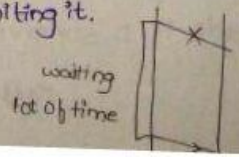 iting it.
waiting
lot of time